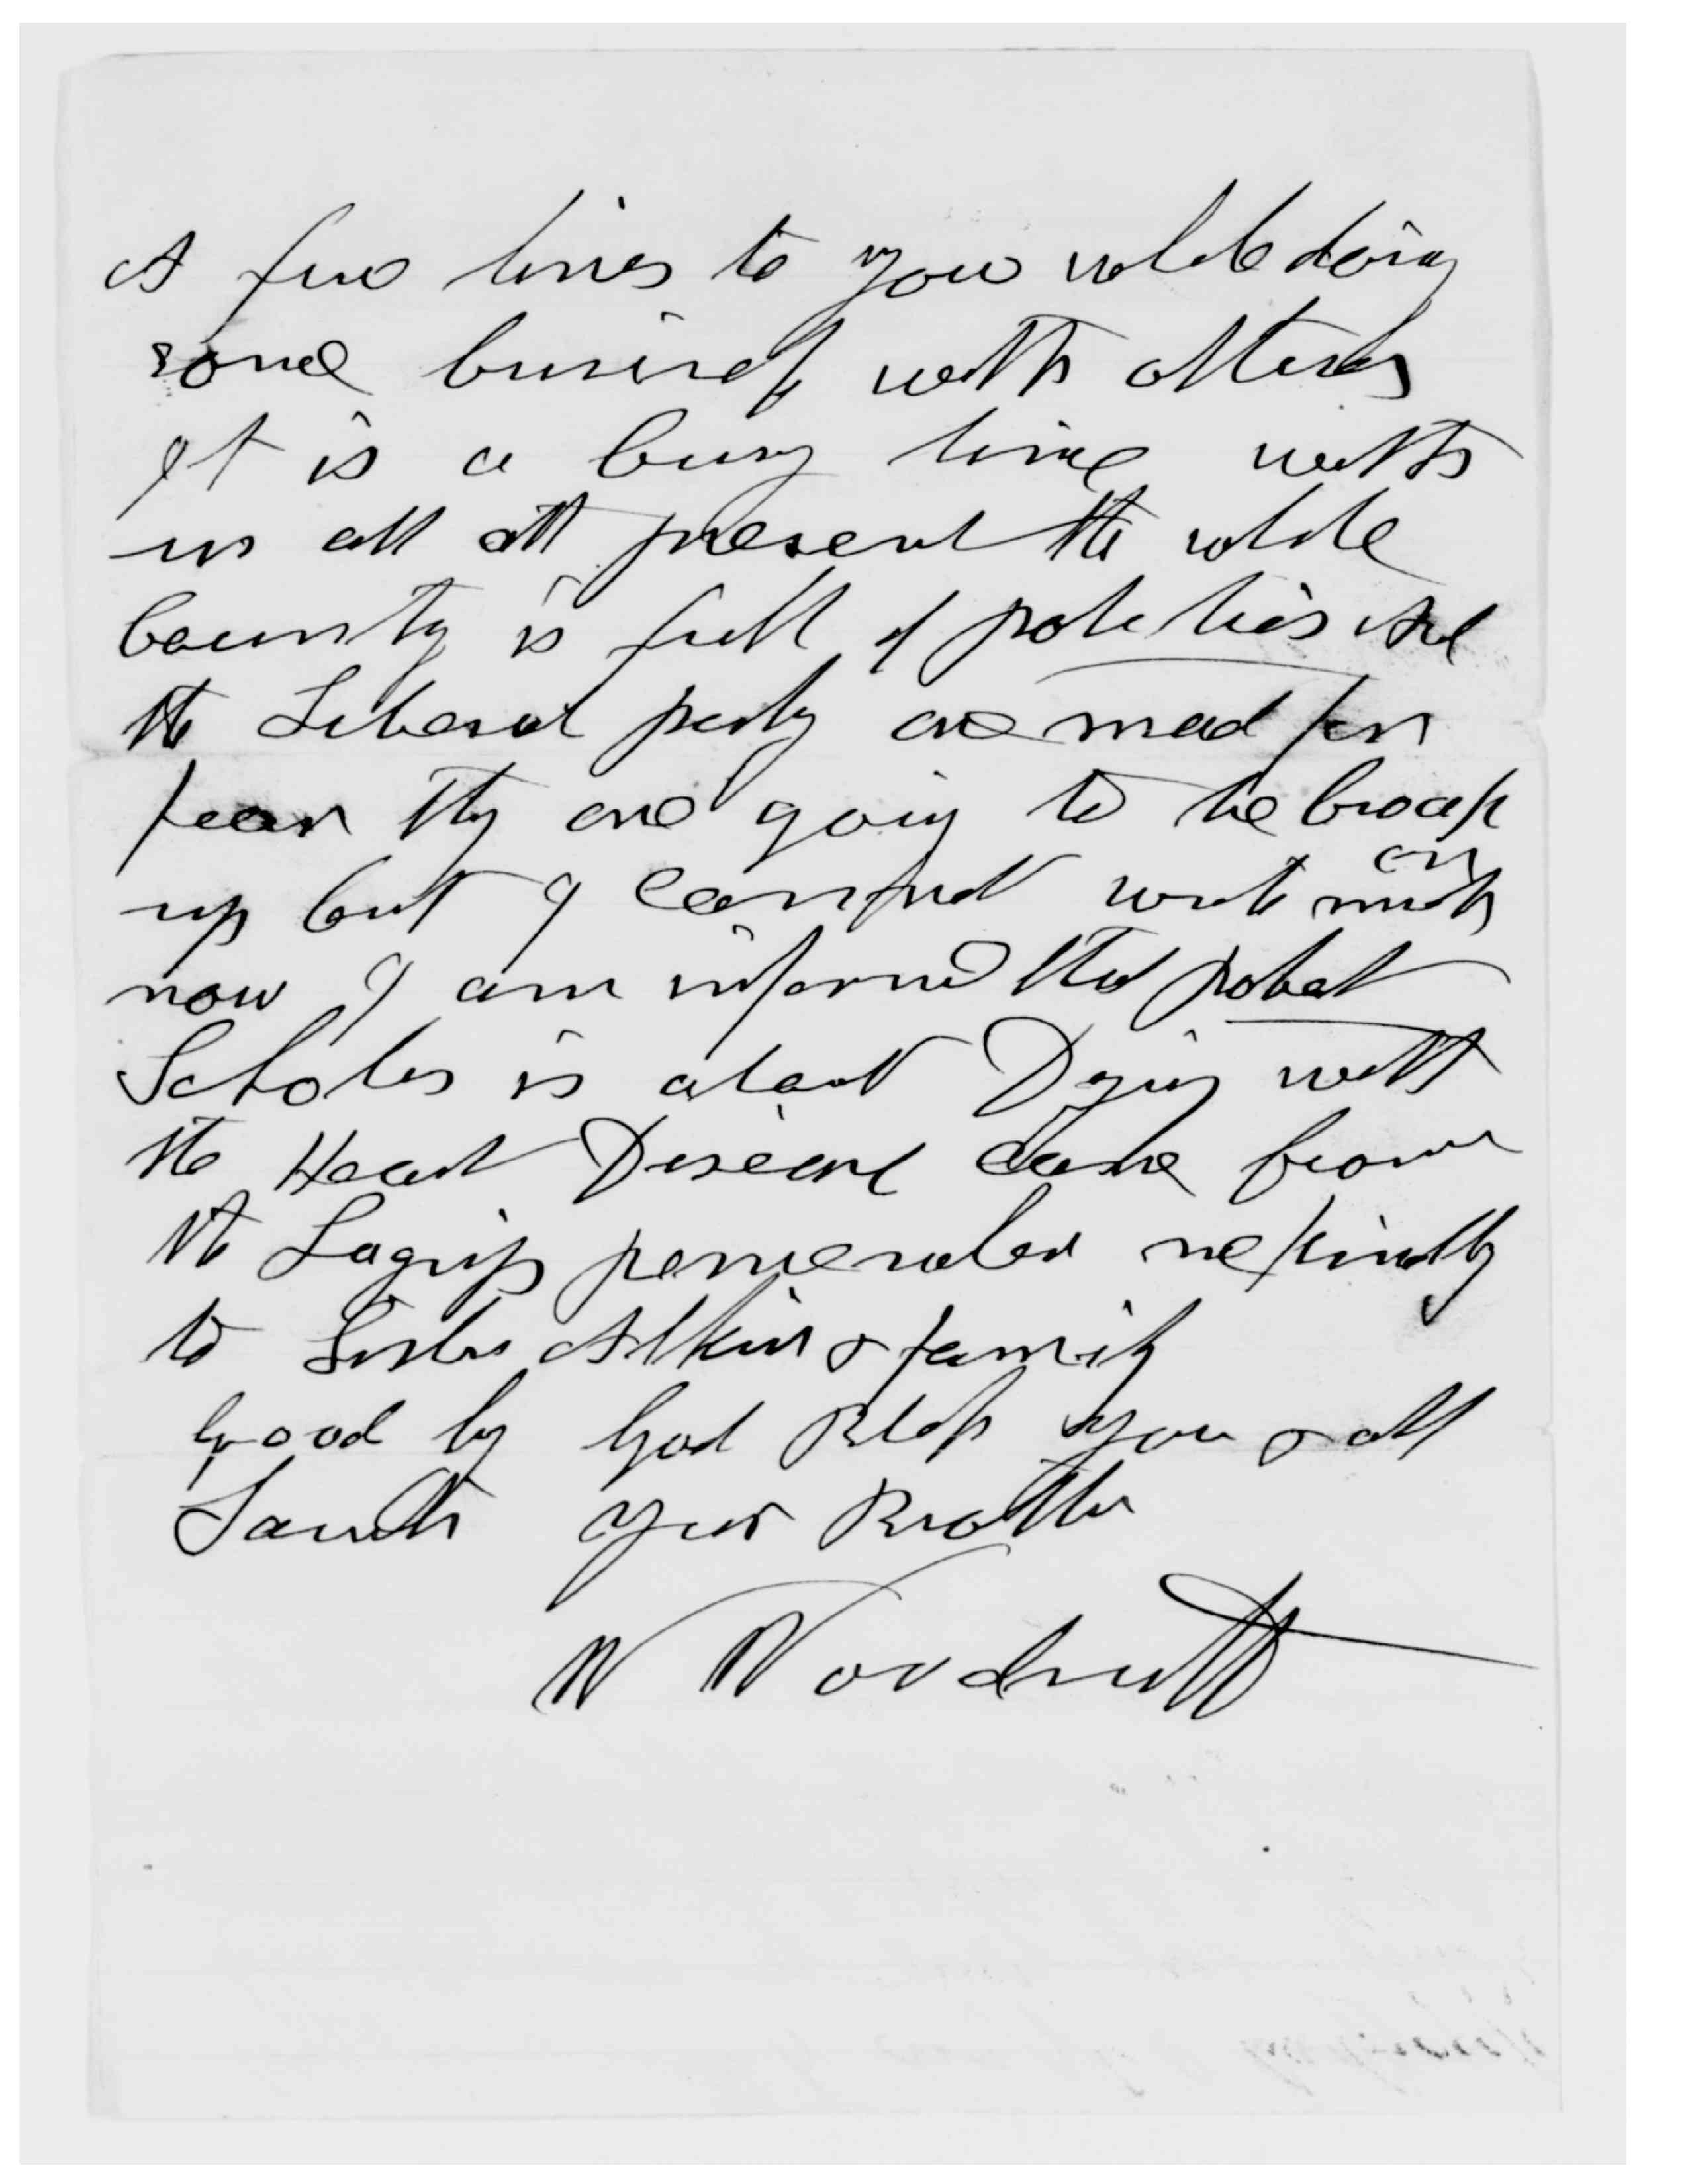 A few lines to you while doing
some business with others
It is a busy time with
us all att present the whole
County is full of politics and
the Liberal party are mad for
fear they are going to be broak
up but I cannot write much on
now I am informed that Robert
Scholes is about Dying with
the Heart Disease came from
the Lagrip remember me kindly
to Sister Atkin & family
Good by God Bless you & all
Saints Your Brother
W Woodruff